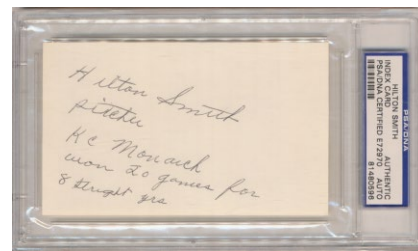 Hilton Smith
pitcher
KC Monarch
won 20 games for
8 straight yrs
PSA/DNA
HILTON SMITH
INDEX CARD AUTHENTIC
PSA/DNA CERTIFIED E72970 AUTO
81480596